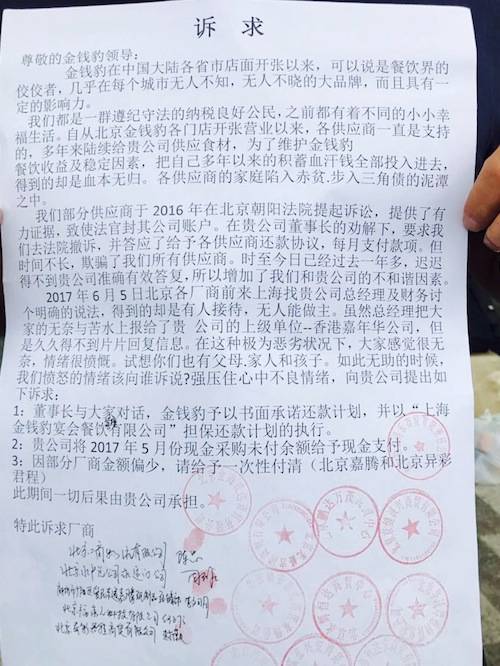 诉 求
尊敬的金钱豹领导：
金钱豹在中国大陆各省市店面开张以来，可以说是餐饮界的
佼佼者，几乎在每个城市无人不知，无人不晓的大品牌，而且具有一
定的影响力。
我们都是一群遵纪守法的纳税良好公民，之前都有着不同的小小幸
福生活。自从北京金钱豹各门店开张营业以来，各供应商一直是支持
的，多年来陆续给贵公司供应食材，为了维护金钱豹
餐饮收益及稳定因素，把自己多年以来的积蓄血汗钱全部投入进去，
得到的却是血本无归。各供应商的家庭陷入赤贫.步入三角债的泥潭
之中。
我们部分供应商于 2016 年在北京朝阳法院提起诉讼，提供了有
力证据，致使法官封其公司账户。在贵公司董事长的劝解下，要求我
们去法院撤诉，并答应了给予各供应商还款协议，每月支付款项。但
时间不长，欺骗了我们所有供应商。时至今日已经过去一年多，迟迟
得不到贵公司准确有效答复，所以增加了我们和贵公司的不和谐因素。
2017 年 6 月 5 日北京各厂商前来上海找贵公司总经理及财务讨
个明确的说法，得到的却是有人接待，无人能做主。虽然总经理把大
家的无奈与苦水上报给了贵 公司的上级单位--香港嘉年华公司，但
是久久得不到片片回复信息。在这种极为恶劣状况下，大家感觉很无
奈，情绪很愤慨。试想你们也有父母.家人和孩子。如此无助的时候，
我们愤怒的情绪该向谁诉说?强压住心中不良情绪，向贵公司提出如
下诉求：
1：董事长与大家对话，金钱豹予以书面承诺还款计划，并以“上海
金钱豹宴会餐饮有限公司”担保还款计划的执行。
2：贵公司将 2017 年 5 月份现金采购未付余额给予现金支付。
3：因部分厂商金额偏少，请给予一次性付清（北京嘉腾和北京异彩
君程）
此期间一切后果由贵公司承担。
特此诉求厂商